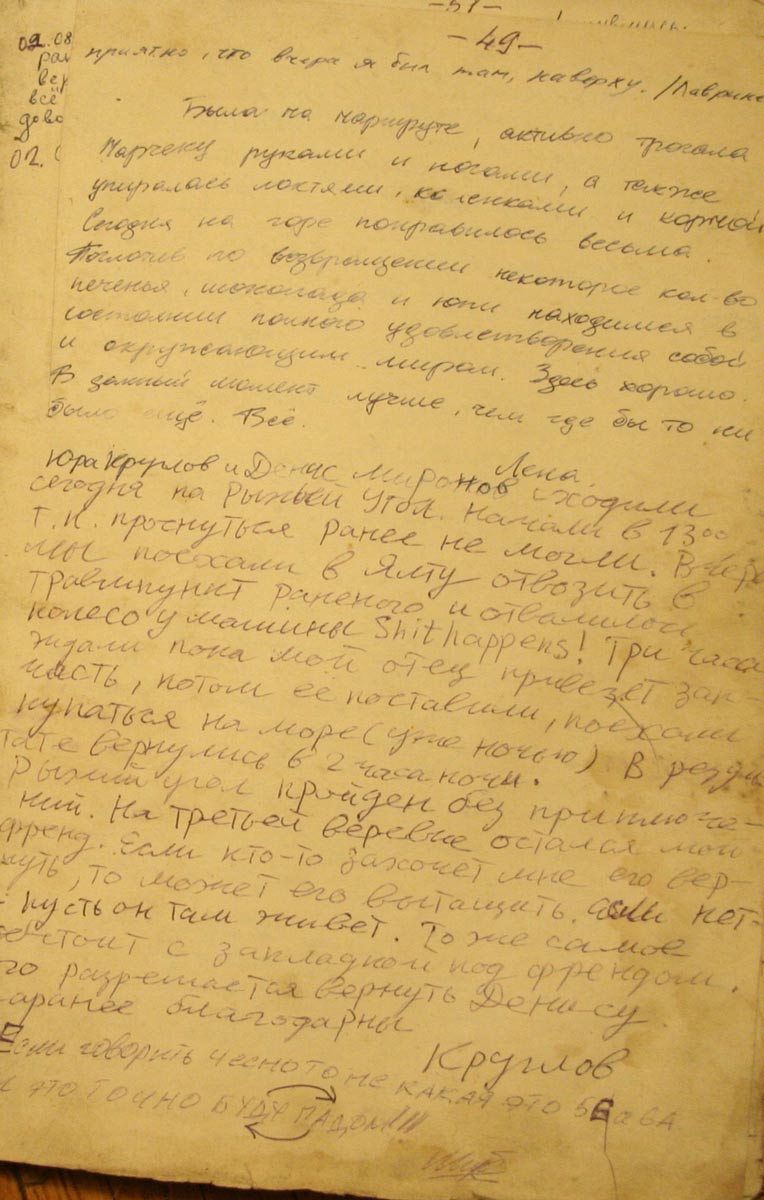 -51-
-49-
02.08
приятно, что вчера я был там, наверху. /Лаврине
всё
дово
02.
Была на маршруте, активно трогала
Марчеку руками и ногами, а также
упиралась локтями, коленками и
Сегодня на горе понравилось весьма.
Поглотив по возвращении некоторое кол-во
печенья, шоколада и юпи находимся в
состоянии полного удовлетворения собой
и окружающим миром. Здесь хорошо.
В данный момент лучше, чем где бы то ни
было ещё. Всё.
Лена.
Юра Круглов и Денис Миронов ходили
сегодня на Рыжый Угол. Начали в 13 00
т.к. проснуться ранее не могли. Вчера
мы поехали в Ялту отвозить в
травмпункт раненого и отвалилось
колесо у машины Shit happens! Три часа
ждали пока мой отец привезёт зап-
часть, потом её поставили, поехали
купаться на море (уже ночью). В резуль
тате вернулись в 2 часа ночи.
Рыжий угол пройден без приключе-
ний. На третьей веревке остался мой
френд. Если кто-то захочет мне его вер-
нуть, то может его вытащить. если нет-
- пусть он там живет. То же самое
стоит с закладкой под френдом.
го разрешается вернуть Денису.
аранее благодарны
Круглов
Если говорить чесно то не КАКАЯ ЭТО
ЭТО ТОЧНО БУДУ